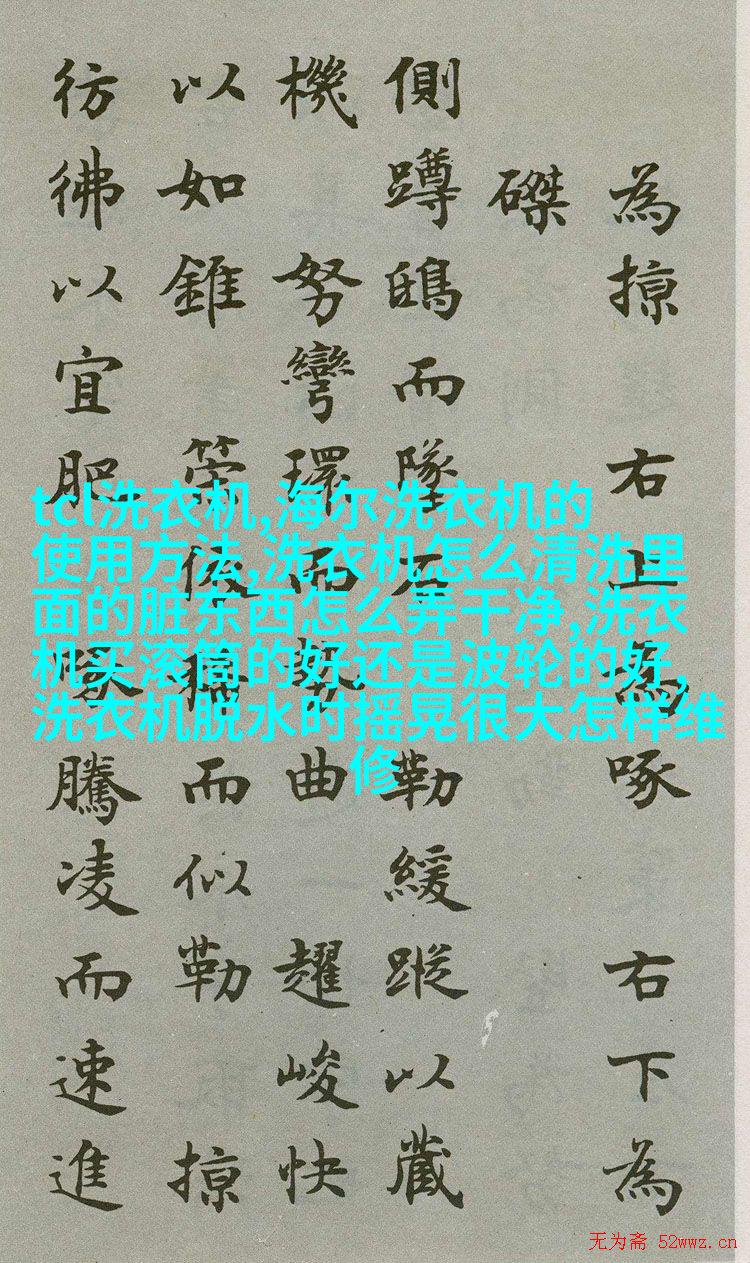 為掠 右上為啄 右下為
磔
側蹲鴟而墜石 勒緩蹤以藏
機 努彎環而勢曲 趯峻快
以如錐 策依稀而似勒 掠
彷彿以宜肥 啄騰凌而速進
tcl洗衣机,海尔洗衣机的
使用方法,洗衣机怎么清洗里
面的脏东西怎么弄干净,洗衣
机买滚筒的好还是波轮的好,
洗衣机脱水时摇晃很大怎样维
修
无为斋 52wwz.cn